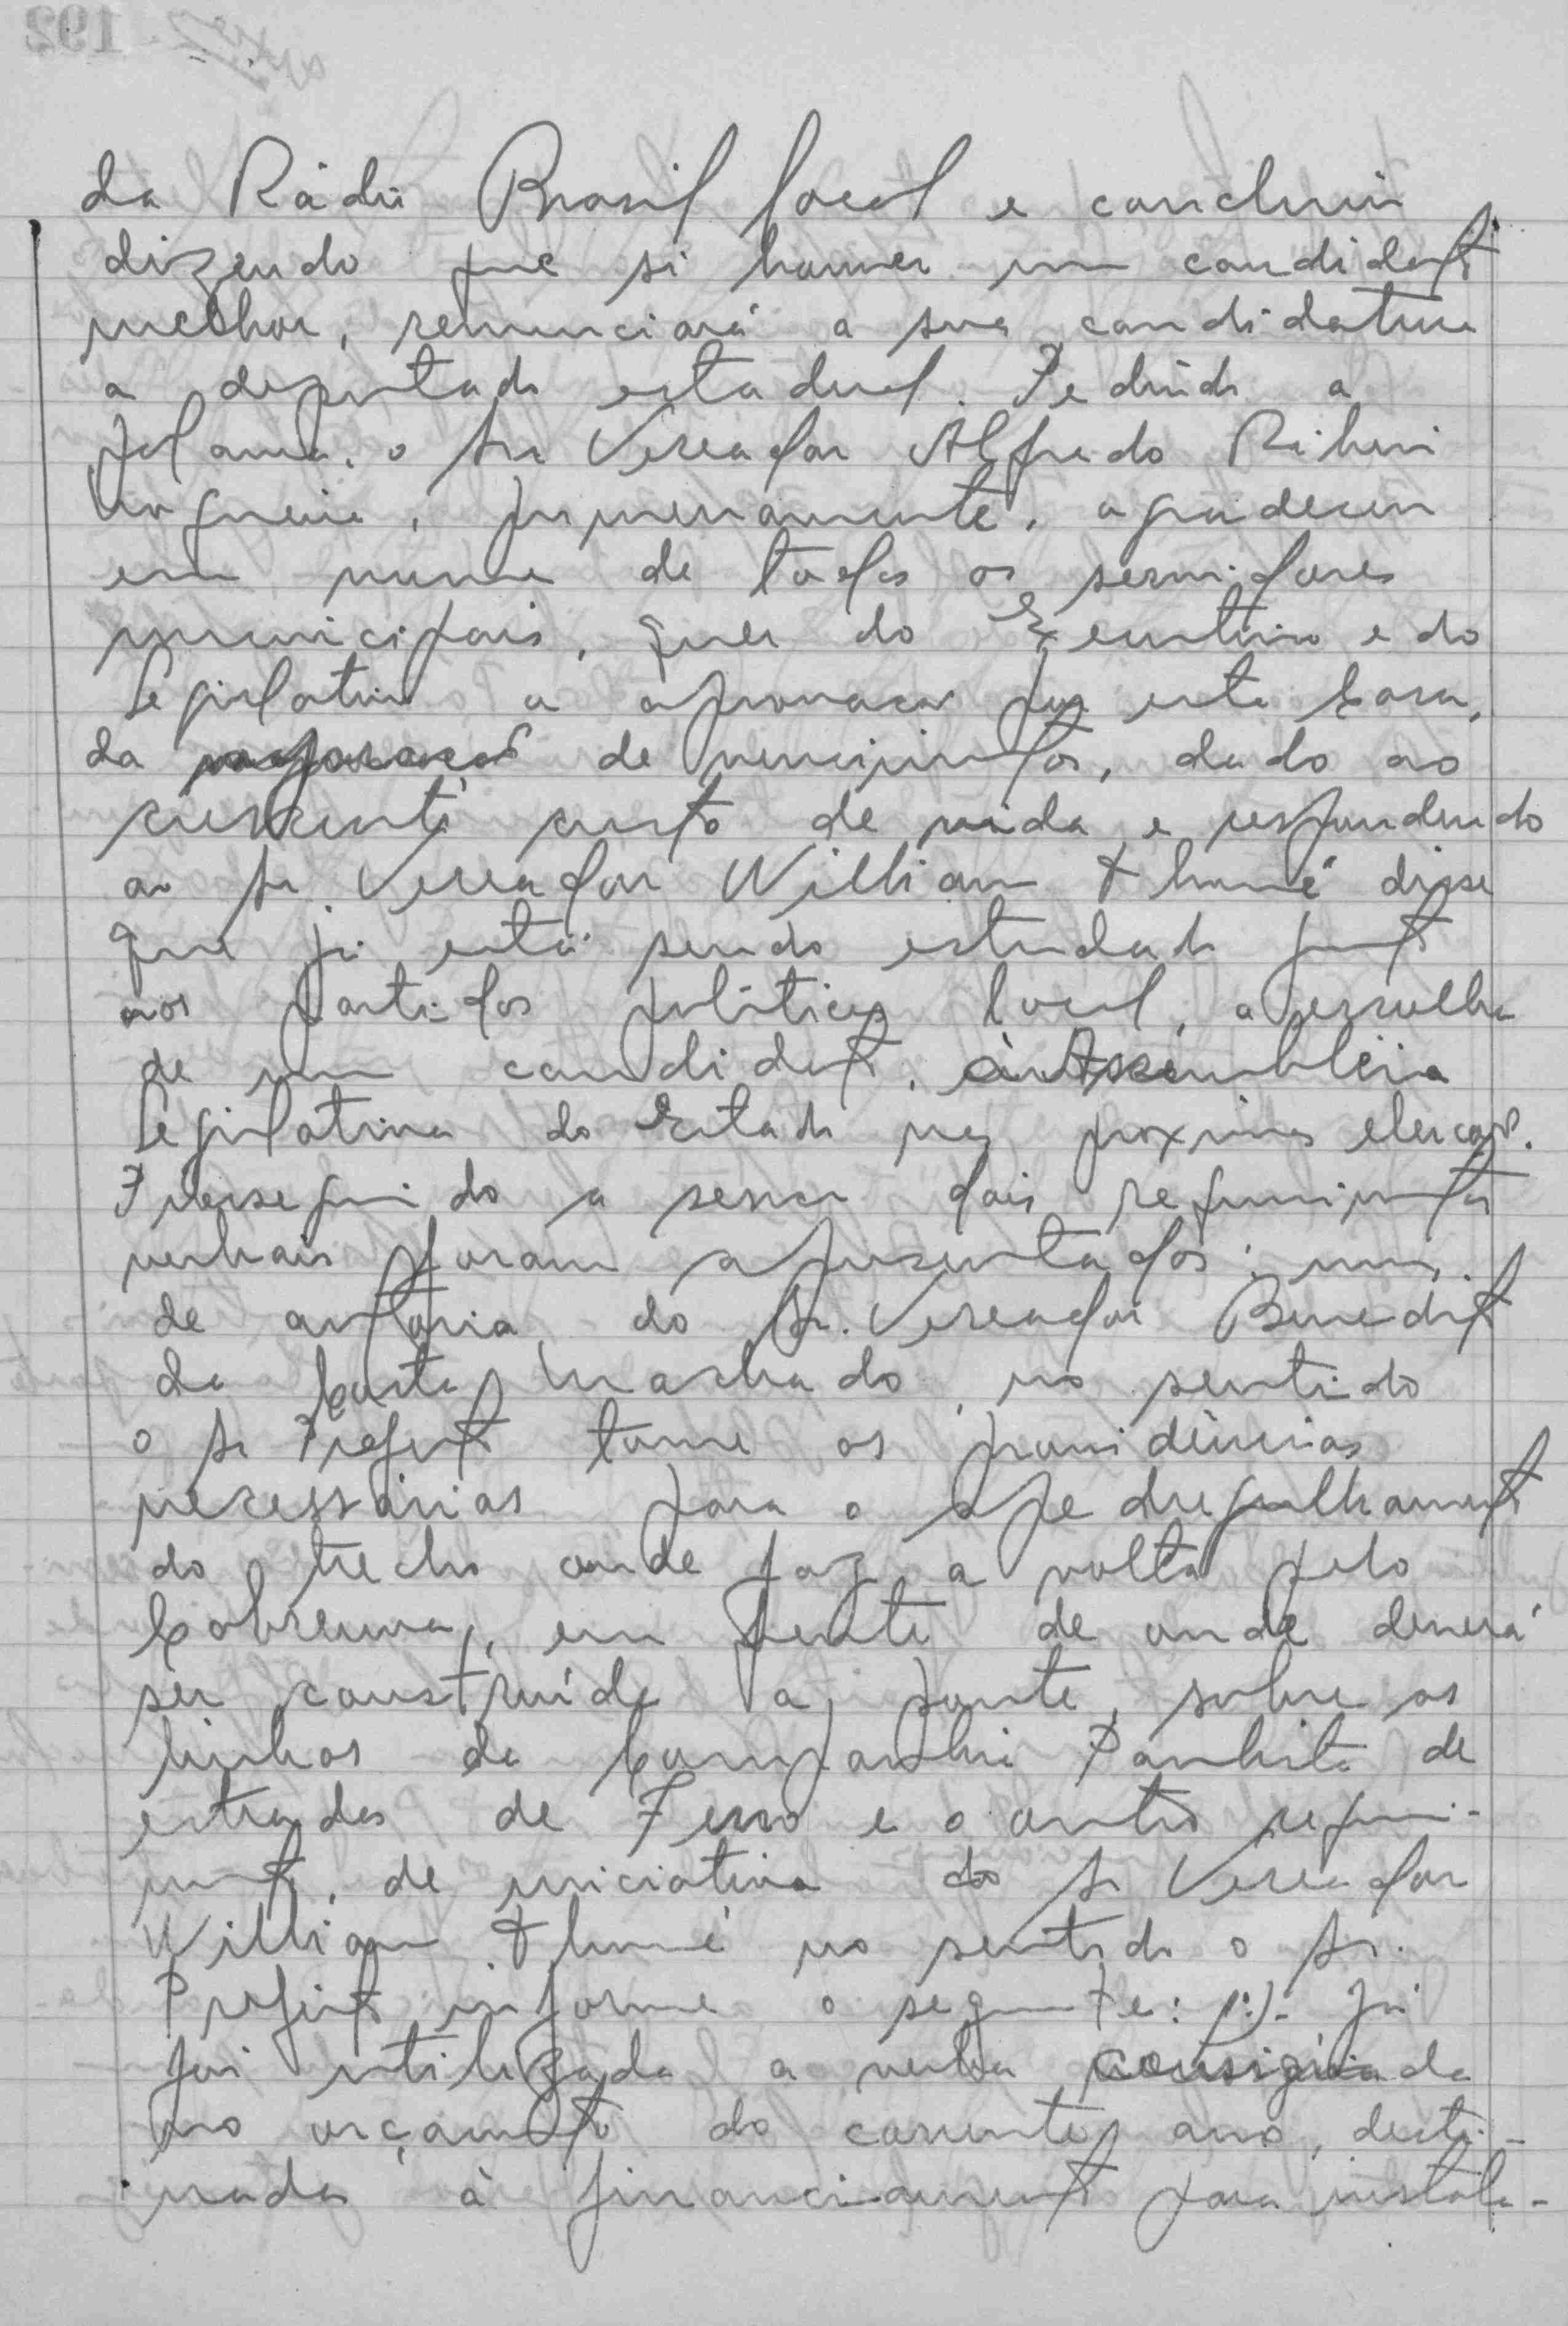 da Rádio Brasil local e concluiu
dizendo que si houver um candidato
melhor, renunciará a sua candidatura
a deputado estadual. Pedindo a
palavra, o Sr Vereador Alfredo Ribeiro
Nogueira, primeiramente, agradeceu
em nome de todos os servidores
municipais, quer do Executivo e do
Legislativo a aprovação por esta Casa,
da majoração de vencimentos, dado ao
crescente custo de vida e respondendo
ao Sr. Vereador William Thomé disse
que já está sendo estudado junto
aos partidos políticos local, a escolha
de um candidato, à Assembléia
Legislativa do Estado nas proximas eleições.
Prosseguindo a sessão dois requerimentos
verbais foram apresentados: um,
de autoria do Sr. Vereador Benedito
da Costa Machado, no sentido
o Sr Prefeito tome as providências
necessárias para o apedregulhamento
do trecho onde faz a volta pelo
Cobreuva, em frente de onde deverá
ser construída a ponte, sobre as
linhas da Companhia Paulista de
estradas de Ferro e o outro requeri-
mento, de iniciativa do Sr Vereador
William Thomé no sentido o Sr.
Prefeito informe o seguinte: 1º)- Já
foi utilizada a verba consignada
no orçamento do corrente ano, desti-
nada à financiamento para instala-